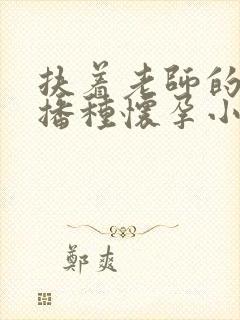 扶着老師的
播種懷孕小
鄭爽